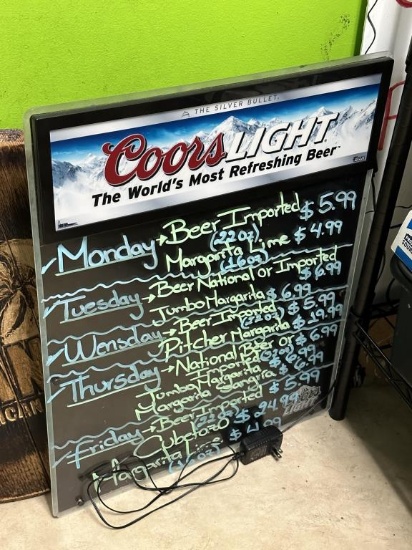 THE SILVER BULLET
Coors LIGHT
The World's Most Refreshing Beer
Monday → Beer Imported $5.99
(22oz)
Margarita Lime $4.99
(16oz)
Tuesday → Beer National or Imported
$6.99
Jumbo Margarita $6.99
Wensday → Beer Imported $5.99
(22oz)
Pitcher Margarita $19.99
Thursday → National Beer or
Imported $6.99
Jumbo Margarita
Margarita Sangria
Friday → Beer Imported $5.99
(22oz)
Cubetazo $24.99
Margarita Lime $4.99
(16oz)